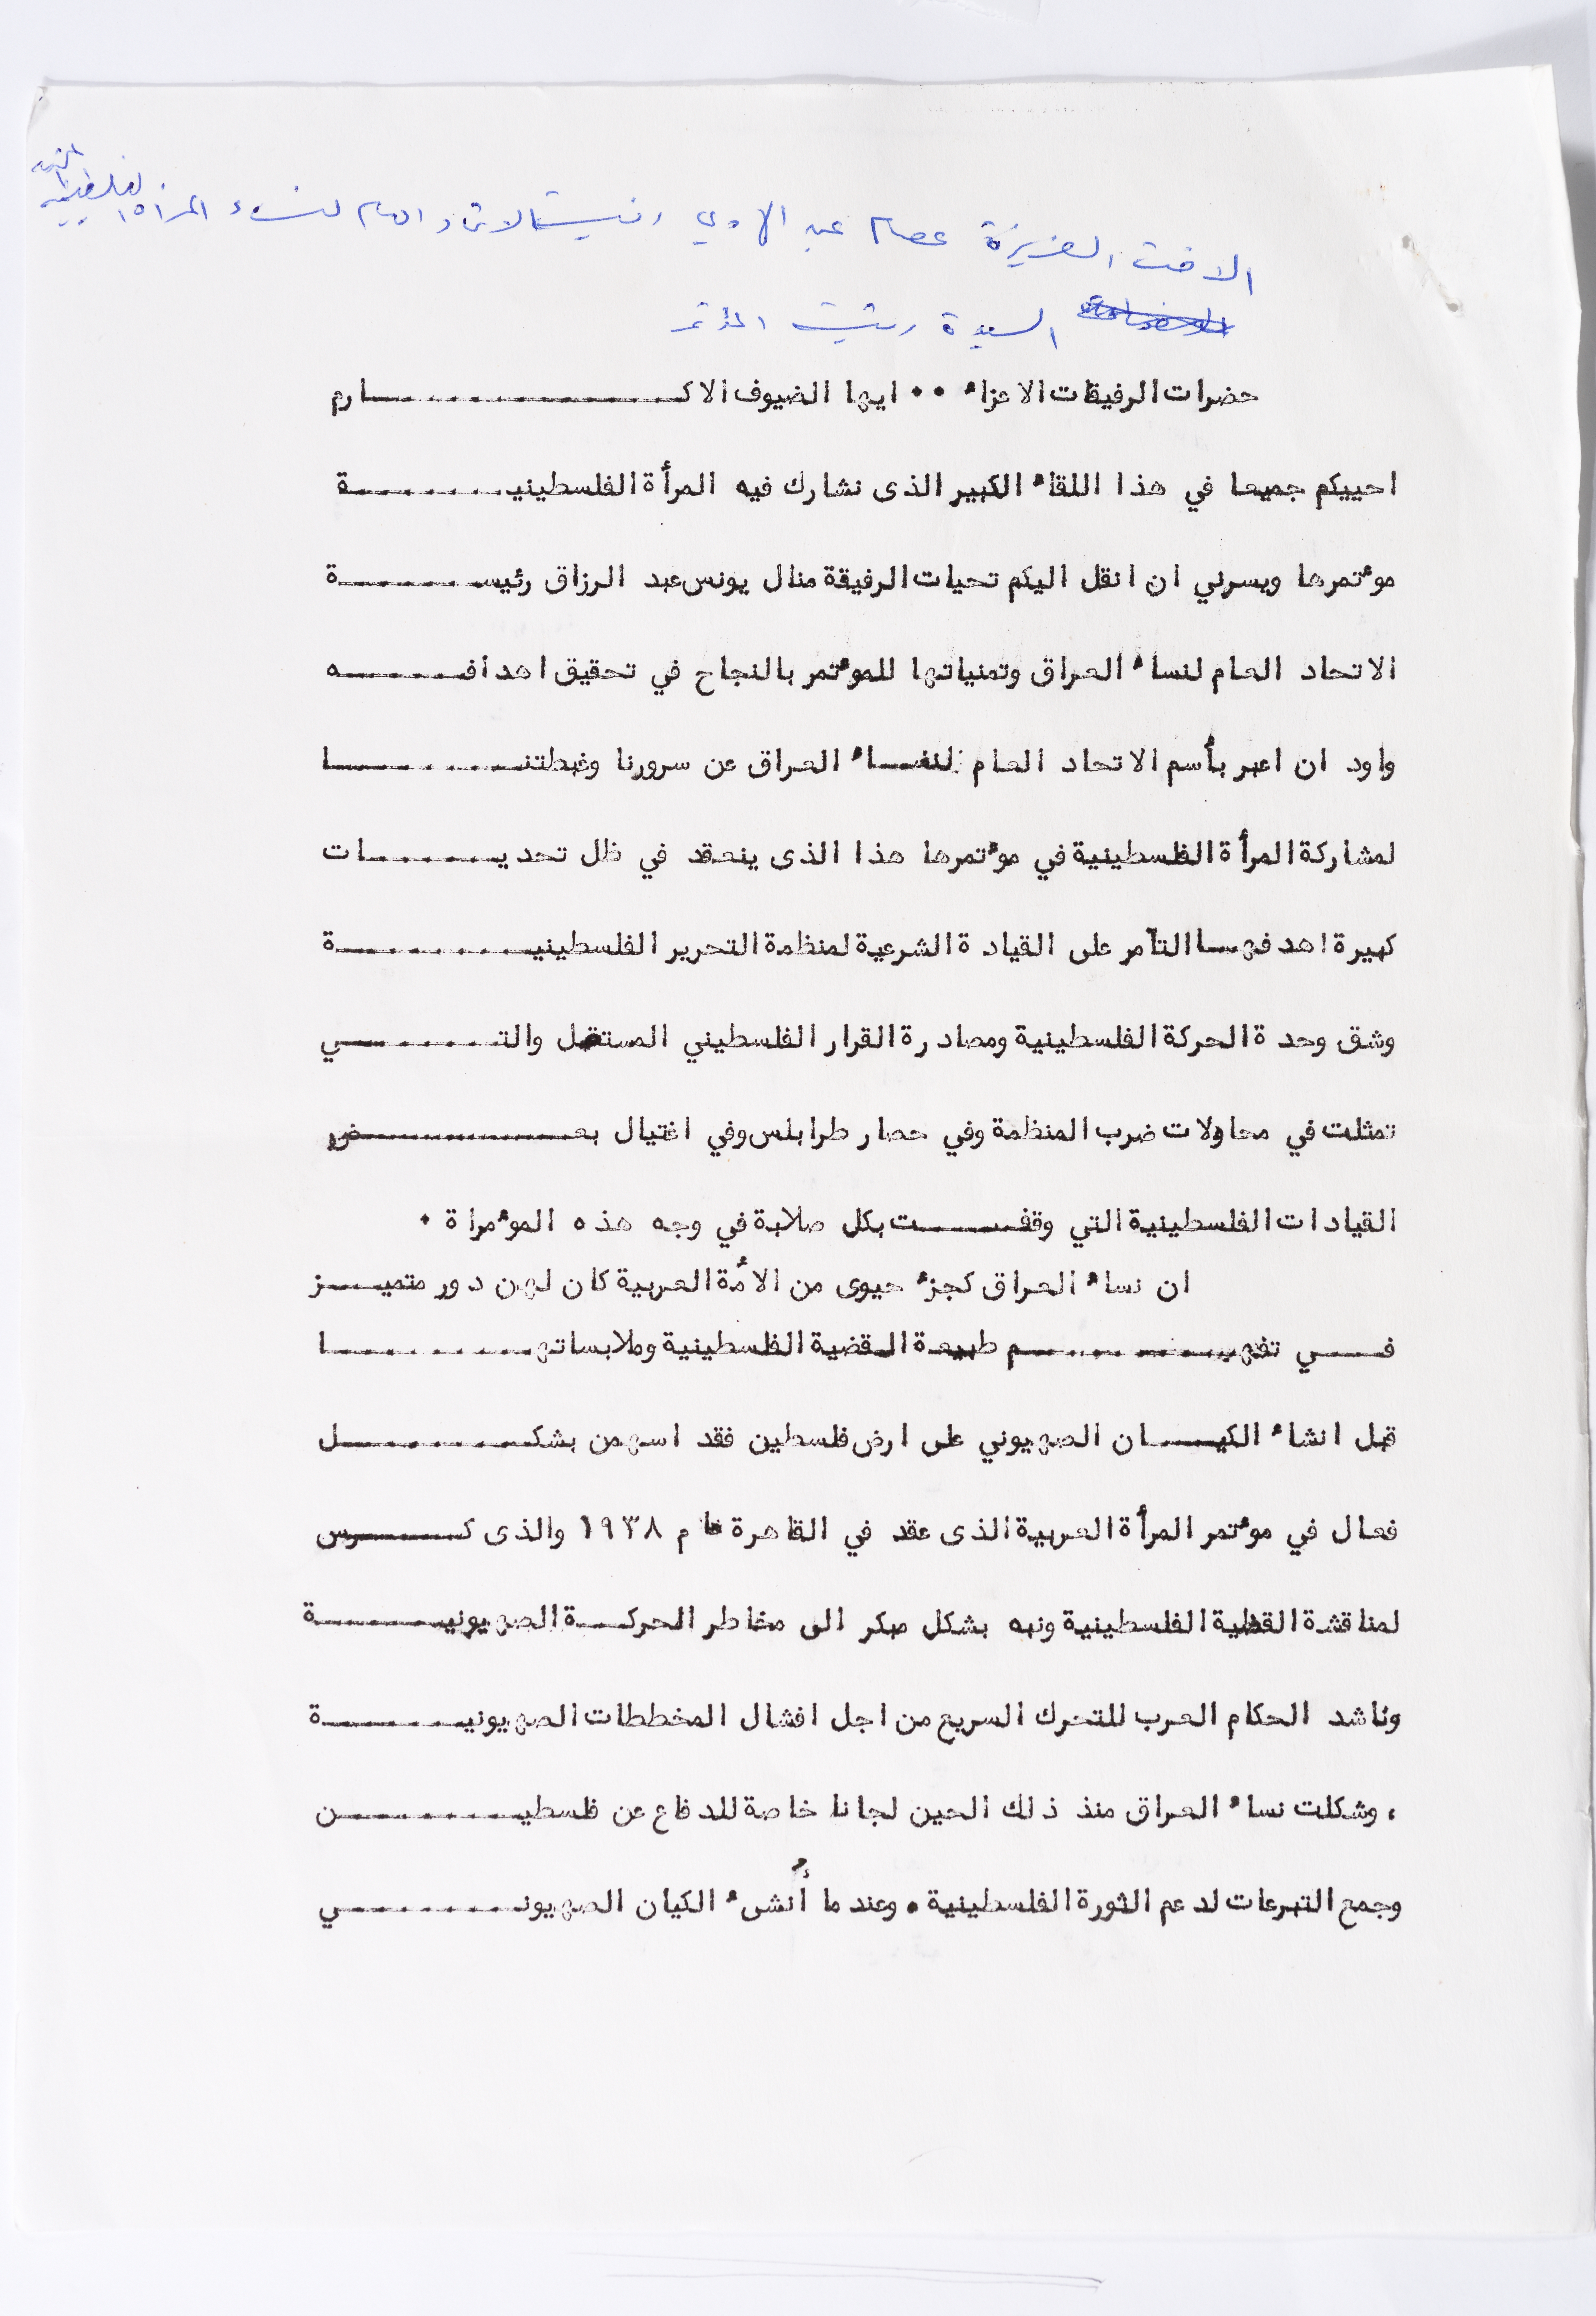 الاخت العزيزة عصام عبد الهادي رئيسة الاتحاد العام لنساء المرأة الفلسطينية
السيدة رئيسة المؤتمر
حضرات الرفيقات الاعزاء ٠٠ ايها الضيوف الاكــــــارم
احييكم جميعا في هذا اللقاء الكبير الذى نشارك فيه المرأة الفلسطينيــــــة
مؤتمرها ويسرني ان انقل اليكم تحيات الرفيقة منال يونس عبد الرزاق رئيســــــة
الاتحاد العام لنساء العراق وتمنياتها للمؤتمر بالنجاح في تحقيق اهدافــــــه
واود ان اعبر بأسم الاتحاد العام لنســاء العراق عن سرورنا وغبطتنــــــا
لمشاركة المرأة الفلسطينية في مؤتمرها هذا الذى ينعقد في ظل تحديــــــات
كبيرة اهدفهــا التآمر على القيادة الشرعية لمنظمة التحرير الفلسطينيــــــة
وشق وحدة الحركة الفلسطينية ومصادرة القرار الفلسطيني المستقل والتــــــي
تمثلت في محاولات ضرب المنظمة وفي حصار طرابلس وفي اغتيال بعــــــض
القيادات الفلسطينية التي وقفــــت بكل صلابة في وجه هذه المؤمراة ٠
ان نساء العراق كجزء حيوى من الأمة العربية كان لهن دور متميــــز
فــــي تفهــــــم طبيعة القضية الفلسطينية وملابساتهــــــا
قبل انشاء الكيــــان الصهيوني على ارض فلسطين فقد اسهمن بشكــــــل
فعال في مؤتمر المرأة العربية الذى عقد في القاهرة عام ١٩٣٨ والذى كــــــرس
لمناقشة القضية الفلسطينية ونبه بشكل مبكر الى مخاطر الحركــــة الصهيونيــــــة
وناشد الحكام العرب للتحرك السريع من اجل افشال المخططات الصهيونيــــــة
، وشكلت نساء العراق منذ ذلك الحين لجانا خاصة للدفاع عن فلسطيــــــن
وجمع التبرعات لدعم الثورة الفلسطينية ٠ وعندما أنشىء الكيان الصهيونــــــي